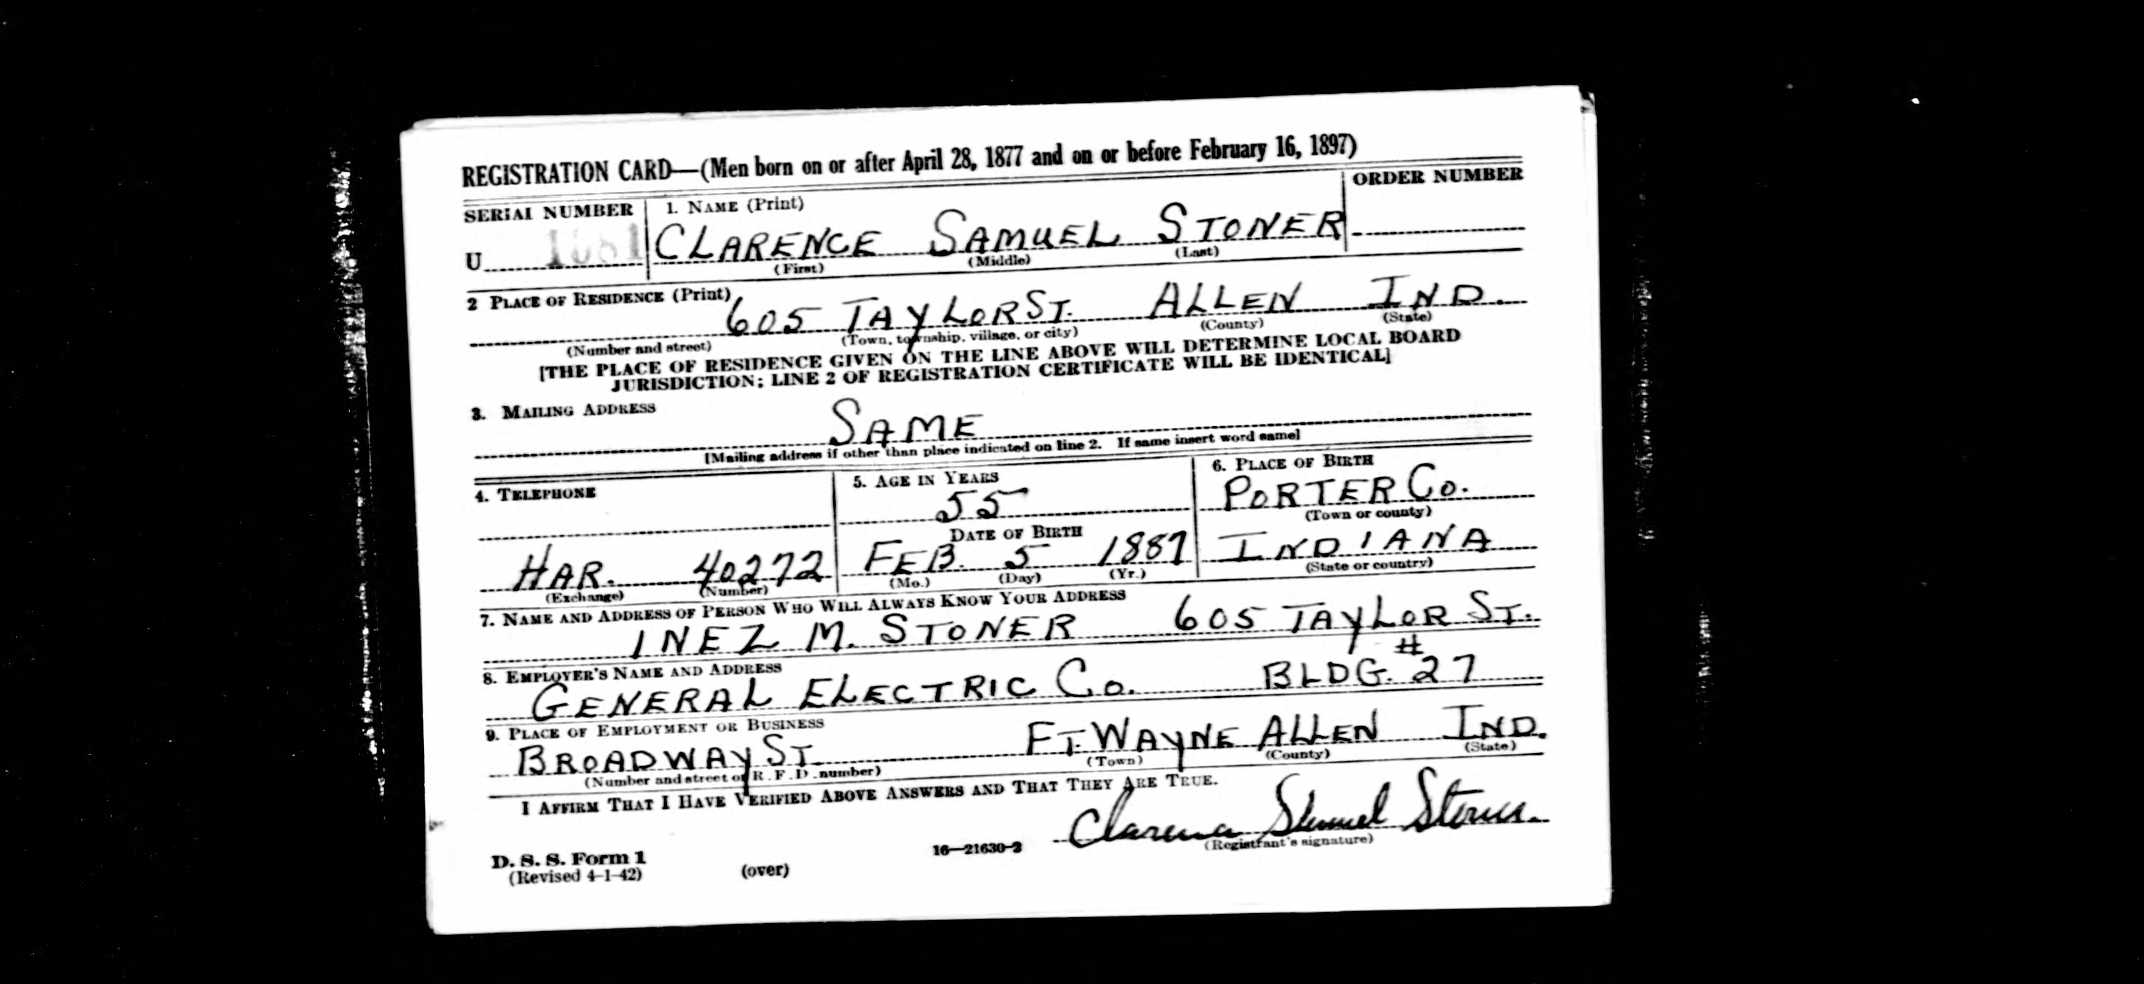 REGISTRATION CARD—(Men born on or after April 28, 1877 and on or before February 16, 1897)
SERIAL NUMBER 1. NAME (Print) ORDER NUMBER
U CLARENCE SAMUEL STONER
(First) (Middle) (Last)
2 PLACE OF RESIDENCE (Print)
605 TAYLOR ST. ALLEN IND.
(Number and street) (Town, township, village, or city) (County) (State)
[THE PLACE OF RESIDENCE GIVEN ON THE LINE ABOVE WILL DETERMINE LOCAL BOARD
JURISDICTION; LINE 2 OF REGISTRATION CERTIFICATE WILL BE IDENTICAL]
3. MAILING ADDRESS
SAME
[Mailing address if other than place indicated on line 2. If same insert word same]
4. TELEPHONE 5. AGE IN YEARS 6. PLACE OF BIRTH
55 PORTER CO.
DATE OF BIRTH (Town or county)
HAR. 40272 FEB. 5 1887 INDIANA
(Exchange) (Number) (Mo.) (Day) (Yr.) (State or country)
7. NAME AND ADDRESS OF PERSON WHO WILL ALWAYS KNOW YOUR ADDRESS
INEZ M. STONER 605 TAYLOR ST.
8. EMPLOYER'S NAME AND ADDRESS
GENERAL ELECTRIC CO. BLDG. #27
9. PLACE OF EMPLOYMENT OR BUSINESS
BROADWAY ST. FT. WAYNE ALLEN IND.
(Number and street or R. F. D. number) (Town) (County) (State)
I AFFIRM THAT I HAVE VERIFIED ABOVE ANSWERS AND THAT THEY ARE TRUE.
Clarence Samuel Stoner.
D. S. S. Form 1 16—21630-2 (Registrant's signature)
(Revised 4-1-42) (over)